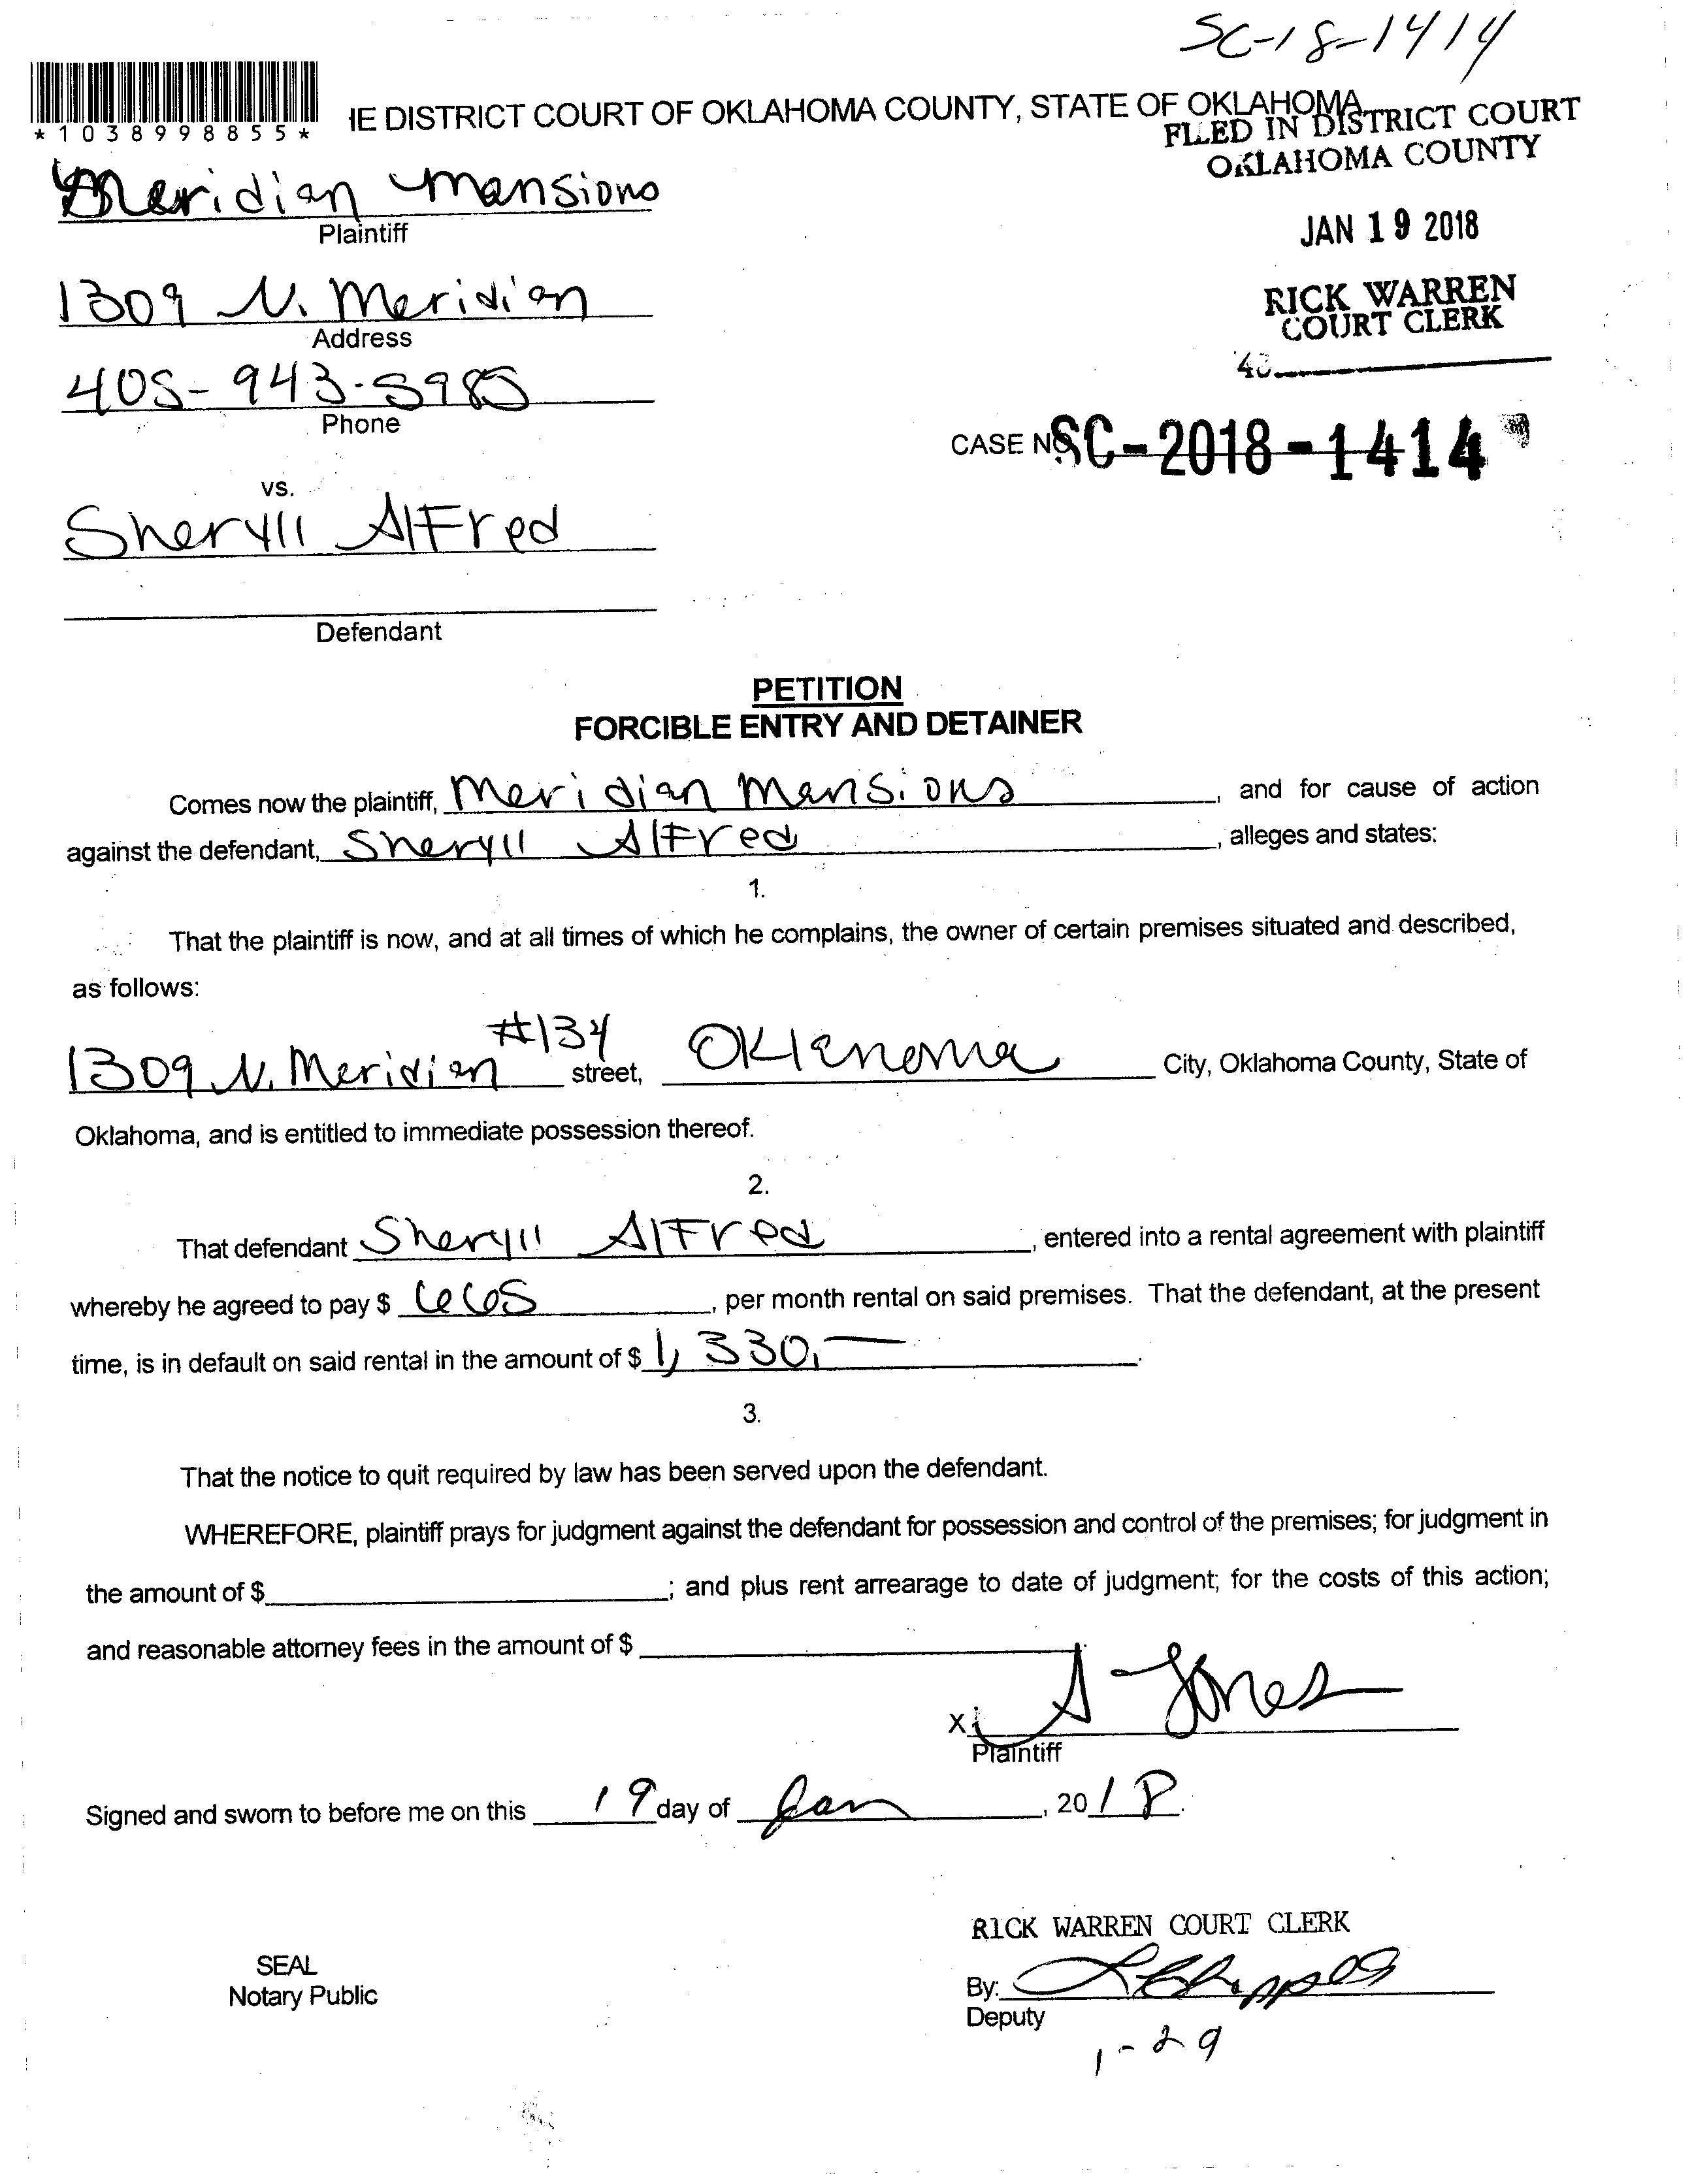 SC-18-1414
*1038998855*
IE DISTRICT COURT OF OKLAHOMA COUNTY, STATE OF OKLAHOMA
FILED IN DISTRICT COURT
OKLAHOMA COUNTY
Meridian Mansions
Plaintiff
JAN 19 2018
1309 N. Meridian
Address
RICK WARREN
COURT CLERK
405-943-5985
Phone
CASE NO. SC-2018-1414
vs.
Sheryll Alfred
Defendant
PETITION
FORCIBLE ENTRY AND DETAINER
Comes now the plaintiff, Meridian Mansions, and for cause of action
against the defendant, Sheryll Alfred, alleges and states:
1.
That the plaintiff is now, and at all times of which he complains, the owner of certain premises situated and described,
as follows:
1309 N. Meridian #134 street, Oklahoma City, Oklahoma County, State of
Oklahoma, and is entitled to immediate possession thereof.
2.
That defendant Sheryll Alfred, entered into a rental agreement with plaintiff
whereby he agreed to pay $ 665, per month rental on said premises. That the defendant, at the present
time, is in default on said rental in the amount of $ 1,330.—.
3.
That the notice to quit required by law has been served upon the defendant.
WHEREFORE, plaintiff prays for judgment against the defendant for possession and control of the premises; for judgment in
the amount of $; and plus rent arrearage to date of judgment; for the costs of this action;
and reasonable attorney fees in the amount of $
X A Jones
Plaintiff
Signed and sworn to before me on this 19 day of Jan, 2018.
RICK WARREN COURT CLERK
SEAL
Notary Public
By:
Deputy
1-29